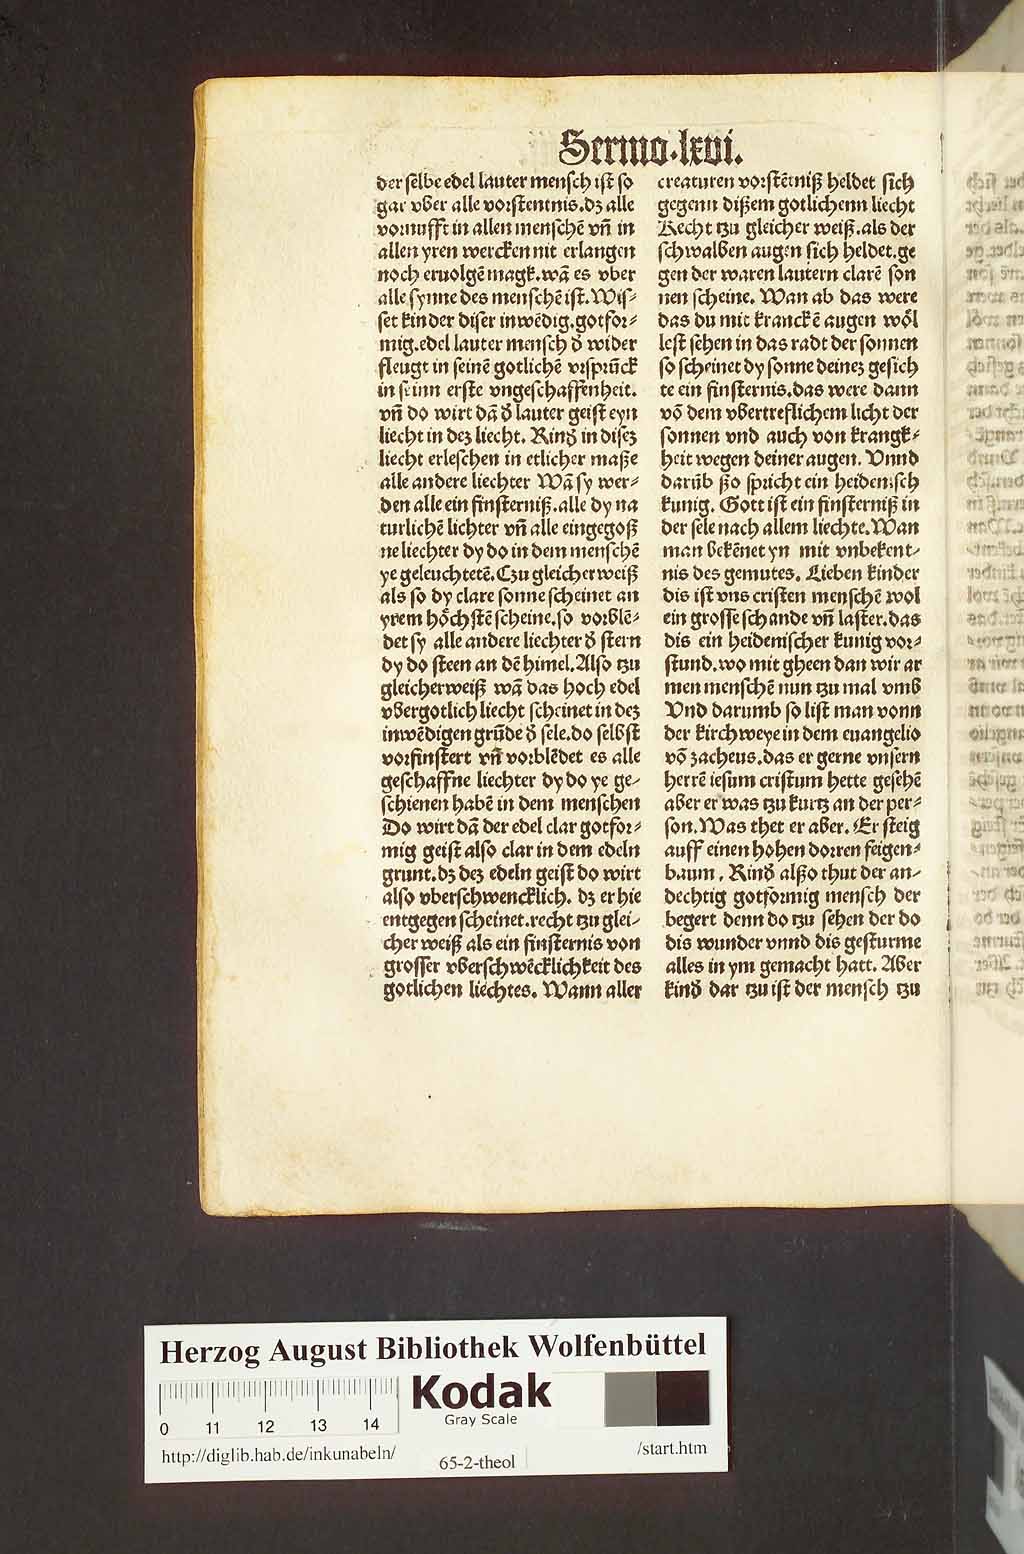 Sermo.lxvi.
der selbe edel lauter mensch ist so
gar vber alle vorstentnis.dz alle
vornufft in allen menschē vn̄ in
allen yren wercken nit erlangen
noch eruolgē magk.wā es vber
alle synne des menschē ist.Wis⸗
set kinder diser inwēdig.gotfor⸗
mig.edel lauter mensch d̕ wider
fleugt in seinē gotlichē vrsprūck
in seinn erste vngeschaffenheit.
vn̄ do wirt dā d̕ lauter geist eyn
liecht in dez liecht. Kind̕ in disez
liecht erleschen in etlicher maße
alle andere liechter Wā sy wer⸗
den alle ein finsterniß.alle dy na
turlichē lichter vn̄ alle eingegoß
ne liechter dy do in dem menschē
ye geleuchtetē.Czu gleicher weiß
als so dy clare sonne scheinet an
yrem hoͤchstē scheine.so vorblē⸗
det sy alle andere liechter d̕ stern
dy do steen an dē himel.Also tzu
gleicherweiß wā das hoch edel
vbergotlich liecht scheinet in dez
inwēdigen grūde d̕ sele.do selbst
vorfinstert vn̄ vorblēdet es alle
geschaffne liechter dy do ye ge⸗
schienen habē in dem menschen
Do wirt dā der edel clar gotfor⸗
mig geist also clar in dem edeln
grunt.dz dez edeln geist do wirt
also vberschwencklich. dz er hie
entgegen scheinet.recht tzu glei⸗
cher weiß als ein finsternis von
grosser vberschwēcklichkeit des
gotlichen liechtes. Wann aller
creaturen vorstētniß heldet sich
gegenn dißem gotlichenn liecht
Recht tzu gleicher weiß.als der
schwalben augen sich heldet.ge
gen der waren lautern clarē son
nen scheine. Wan ab das were
das du mit kranckē augen woͤl
lest sehen in das radt der sonnen
so scheinet dy sonne deinez gesich
te ein finsternis.das were dann
vō dem vbertreflichem licht der
sonnen vnd auch von krangk⸗
heit wegen deiner augen. Vnnd
darūb ßo spricht ein heidenisch
kunig. Gott ist ein finsterniß in
der sele nach allem liechte.Wan
man bekēnet yn mit vnbekent⸗
nis des gemutes. Lieben kinder
dis ist vns cristen menschē wol
ein grosse schande vn̄ laster.das
dis ein heidenischer kunig vor⸗
stund.wo mit gheen dan wir ar
men menschē nun tzu mal vmb
Vnd darumb so list man vonn
der kirchweye in dem euangelio
vō zacheus.das er gerne vnsern
herrē iesum cristum hette gesehē
aber er was tzu kurtz an der per⸗
son.Was thet er aber. Er steig
auff einen hohen dorren feigen⸗
baum. Kind̕ alßo thut der an⸗
dechtig gotformig mensch der
begert denn do tzu sehen der do
dis wunder vnnd dis gesturme
alles in ym gemacht hatt. Aber
kind̕ dar tzu ist der mensch tzu
Herzog August Bibliothek Wolfenbüttel
Kodak
Gray Scale
0 11 12 13 14
http://diglib.hab.de/inkunabeln/
65-2-theol
/start.htm